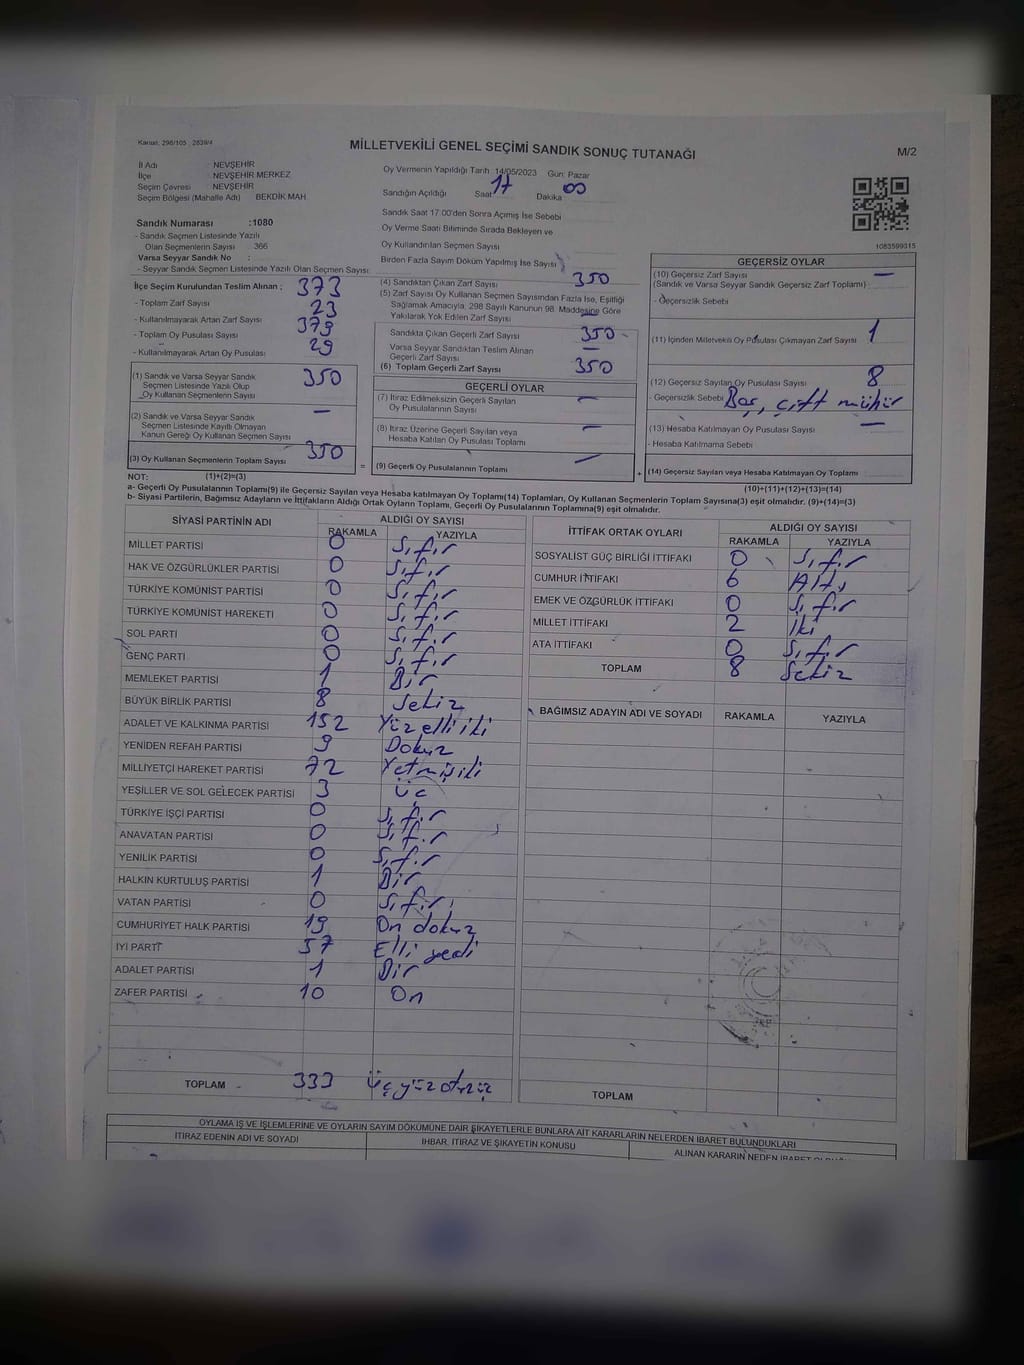 Kanun: 298/105 ; 2839/4
MİLLETVEKİLİ GENEL SEÇİMİ SANDIK SONUÇ TUTANAĞI
M/2
İl Adı : NEVŞEHİR
İlçe : NEVŞEHİR MERKEZ
Seçim Çevresi : NEVŞEHİR
Seçim Bölgesi (Mahalle Adı) BEKDİK MAH.
Sandık Numarası :1080
- Sandık Seçmen Listesinde Yazılı
Olan Seçmenlerin Sayısı : 366
Varsa Seyyar Sandık No :
- Seyyar Sandık Seçmen Listesinde Yazılı Olan Seçmen Sayısı:
Oy Vermenin Yapıldığı Tarih 14/05/2023 Gün: Pazar
Sandığın Açıldığı Saat 17 Dakika 00
Sandık Saat 17.00'den Sonra Açımış İse Sebebi
Oy Verme Saati Bitiminde Sırada Bekleyen ve
Oy Kullandırılan Seçmen Sayısı
Birden Fazla Sayım Döküm Yapılmış İse Sayısı
1083599315
İlçe Seçim Kurulundan Teslim Alınan ;
- Toplam Zarf Sayısı 373
- Kullanılmayarak Artan Zarf Sayısı 23
- Toplam Oy Pusulası Sayısı 379
- Kullanılmayarak Artan Oy Pusulası 29
(1) Sandık ve Varsa Seyyar Sandık 350
Seçmen Listesinde Yazılı Olup
Oy Kullanan Seçmenlerin Sayısı
(2) Sandık ve Varsa Seyyar Sandık —
Seçmen Listesinde Kayıtlı Olmayan
Kanun Gereği Oy Kullanan Seçmen Sayısı
(3) Oy Kullanan Seçmenlerin Toplam Sayısı 350
(1)+(2)=(3)
(4) Sandıktan Çıkan Zarf Sayısı 350
(5) Zarf Sayısı Oy Kullanan Seçmen Sayısından Fazla İse, Eşitliği
Sağlamak Amacıyla, 298 Sayılı Kanunun 98. Maddesine Göre
Yakılarak Yok Edilen Zarf Sayısı —
Sandıkta Çıkan Geçerli Zarf Sayısı 350
Varsa Seyyar Sandıktan Teslim Alınan
Geçerli Zarf Sayısı —
(6) Toplam Geçerli Zarf Sayısı 350
GEÇERLİ OYLAR
(7) İtiraz Edilmeksizin Geçerli Sayılan —
Oy Pusulalarının Sayısı
(8) İtiraz Üzerine Geçerli Sayılan veya —
Hesaba Katılan Oy Pusulası Toplamı
= (9) Geçerli Oy Pusulalarının Toplamı — +
GEÇERSİZ OYLAR
(10) Geçersiz Zarf Sayısı —
(Sandık ve Varsa Seyyar Sandık Geçersiz Zarf Toplamı) :
- Geçersizlik Sebebi
(11) İçinden Milletvekili Oy Pusulası Çıkmayan Zarf Sayısı 1
(12) Geçersiz Sayılan Oy Pusulası Sayısı 8
- Geçersizlik Sebebi Boş, çift mühür
(13) Hesaba Katılmayan Oy Pusulası Sayısı —
- Hesaba Katılmama Sebebi
(14) Geçersiz Sayılan veya Hesaba Katılmayan Oy Toplamı
(10)+(11)+(12)+(13)=(14)
NOT:
a- Geçerli Oy Pusulalarının Toplamı(9) ile Geçersiz Sayılan veya Hesaba katılmayan Oy Toplamı(14) Toplamları, Oy Kullanan Seçmenlerin Toplam Sayısına(3) eşit olmalıdır. (9)+(14)=(3)
b- Siyasi Partilerin, Bağımsız Adayların ve İttifakların Aldığı Ortak Oyların Toplamı, Geçerli Oy Pusulalarının Toplamına(9) eşit olmalıdır.
SİYASİ PARTİNİN ADI ALDIĞI OY SAYISI
RAKAMLA YAZIYLA
MİLLET PARTİSİ 0 Sıfır
HAK VE ÖZGÜRLÜKLER PARTİSİ 0 Sıfır
TÜRKİYE KOMÜNİST PARTİSİ 0 Sıfır
TÜRKİYE KOMÜNİST HAREKETİ 0 Sıfır
SOL PARTİ 0 Sıfır
GENÇ PARTİ 0 Sıfır
MEMLEKET PARTİSİ 1 Bir
BÜYÜK BİRLİK PARTİSİ 8 Sekiz
ADALET VE KALKINMA PARTİSİ 152 Yüz elli iki
YENİDEN REFAH PARTİSİ 9 Dokuz
MİLLİYETÇİ HAREKET PARTİSİ 72 Yetmişiki
YEŞİLLER VE SOL GELECEK PARTİSİ 3 Üç
TÜRKİYE İŞÇİ PARTİSİ 0 Sıfır
ANAVATAN PARTİSİ 0 Sıfır
YENİLİK PARTİSİ 0 Sıfır
HALKIN KURTULUŞ PARTİSİ 1 Bir
VATAN PARTİSİ 0 Sıfır
CUMHURİYET HALK PARTİSİ 19 On dokuz
İYİ PARTİ 57 Elli yedi
ADALET PARTİSİ 1 Bir
ZAFER PARTİSİ 10 On
TOPLAM 333 Üç yüz otuz üç
İTTİFAK ORTAK OYLARI ALDIĞI OY SAYISI
RAKAMLA YAZIYLA
SOSYALİST GÜÇ BİRLİĞİ İTTİFAKI 0 Sıfır
CUMHUR İTTİFAKI 6 Altı
EMEK VE ÖZGÜRLÜK İTTİFAKI 0 Sıfır
MİLLET İTTİFAKI 2 İki
ATA İTTİFAKI 0 Sıfır
TOPLAM 8 Sekiz
BAĞIMSIZ ADAYIN ADI VE SOYADI RAKAMLA YAZIYLA
TOPLAM
OYLAMA İŞ VE İŞLEMLERİNE VE OYLARIN SAYIM DÖKÜMÜNE DAİR ŞİKAYETLERLE BUNLARA AİT KARARLARIN NELERDEN İBARET BULUNDUKLARI
İTİRAZ EDENİN ADI VE SOYADI İHBAR, İTİRAZ VE ŞİKAYETİN KONUSU ALINAN KARARIN NEDEN İBARET OLDUĞU